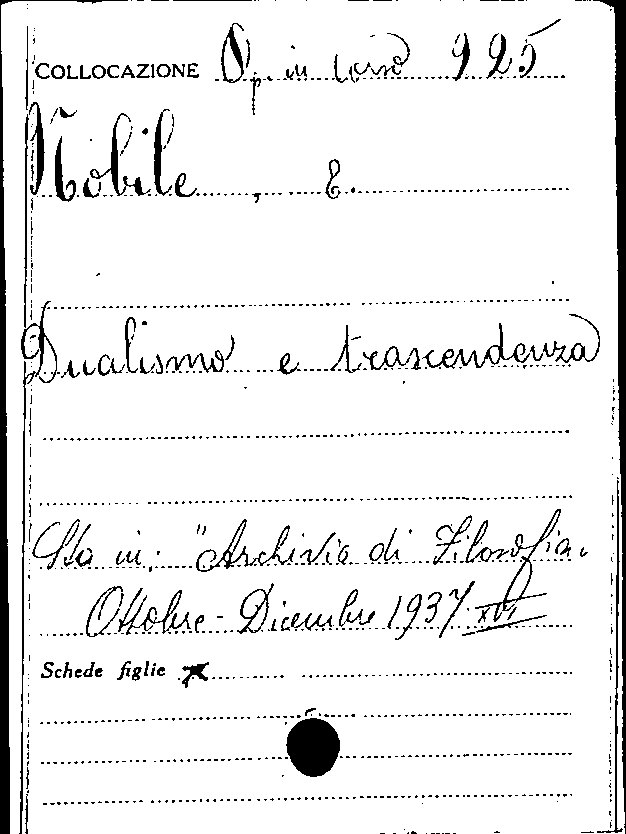 COLLOCAZIONE Op. in corso 925
Nobile, E.
Dualismo e trascendenza
Sta in: "Archivio di Filosofia.
Ottobre - Dicembre 1937 XVI
Schede figlie x